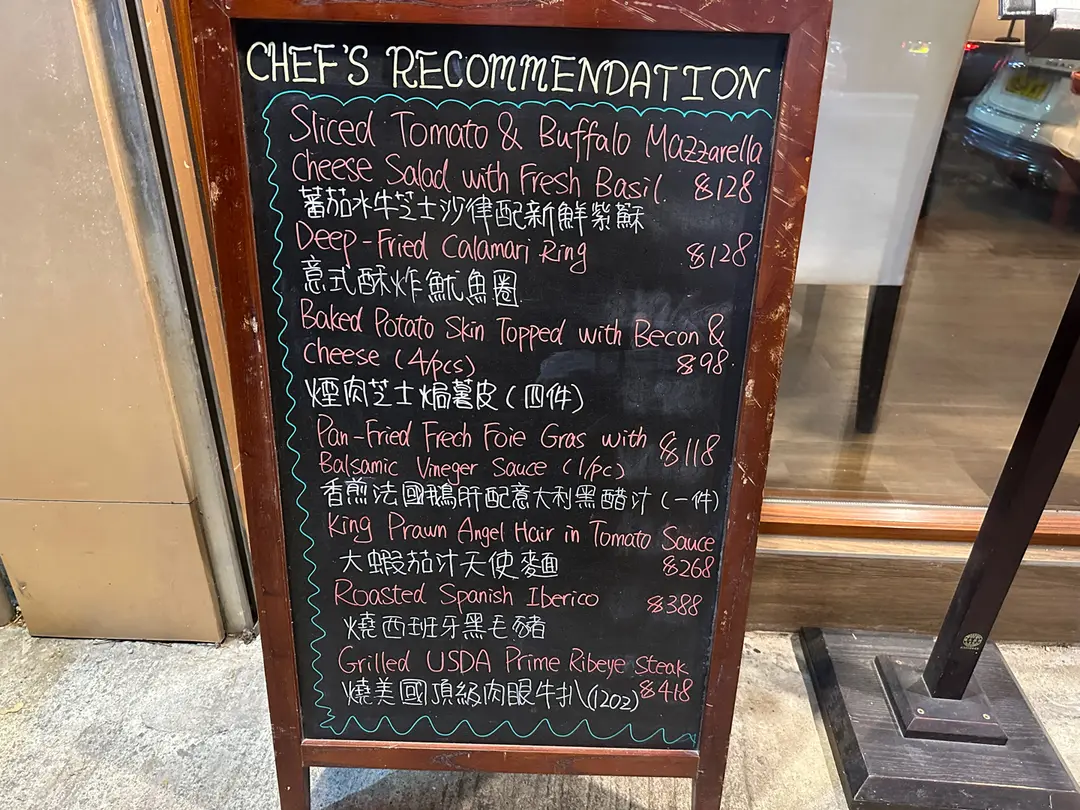 CHEF'S RECOMMENDATION
Sliced Tomato & Buffalo Mazzarella
Cheese Salad with Fresh Basil. $128
蕃茄水牛芝士沙律配新鮮紫蘇
Deep-Fried Calamari Ring $128
意式酥炸魷魚圈
Baked Potato Skin Topped with Becon &
Cheese (4/pcs) $98
煙肉芝士焗薯皮(四件)
Pan-Fried Frech Foie Gras with $118
Balsamic Vineger Sauce (1/pc)
香煎法國鵝肝配意大利黑醋汁(一件)
King Prawn Angel Hair in Tomato Sauce
大蝦茄汁天使麵 $268
Roasted Spanish Iberico $388
燒西班牙黑毛豬
Grilled USDA Prime Ribeye Steak
燒美國頂級肉眼牛扒(12oz) $418